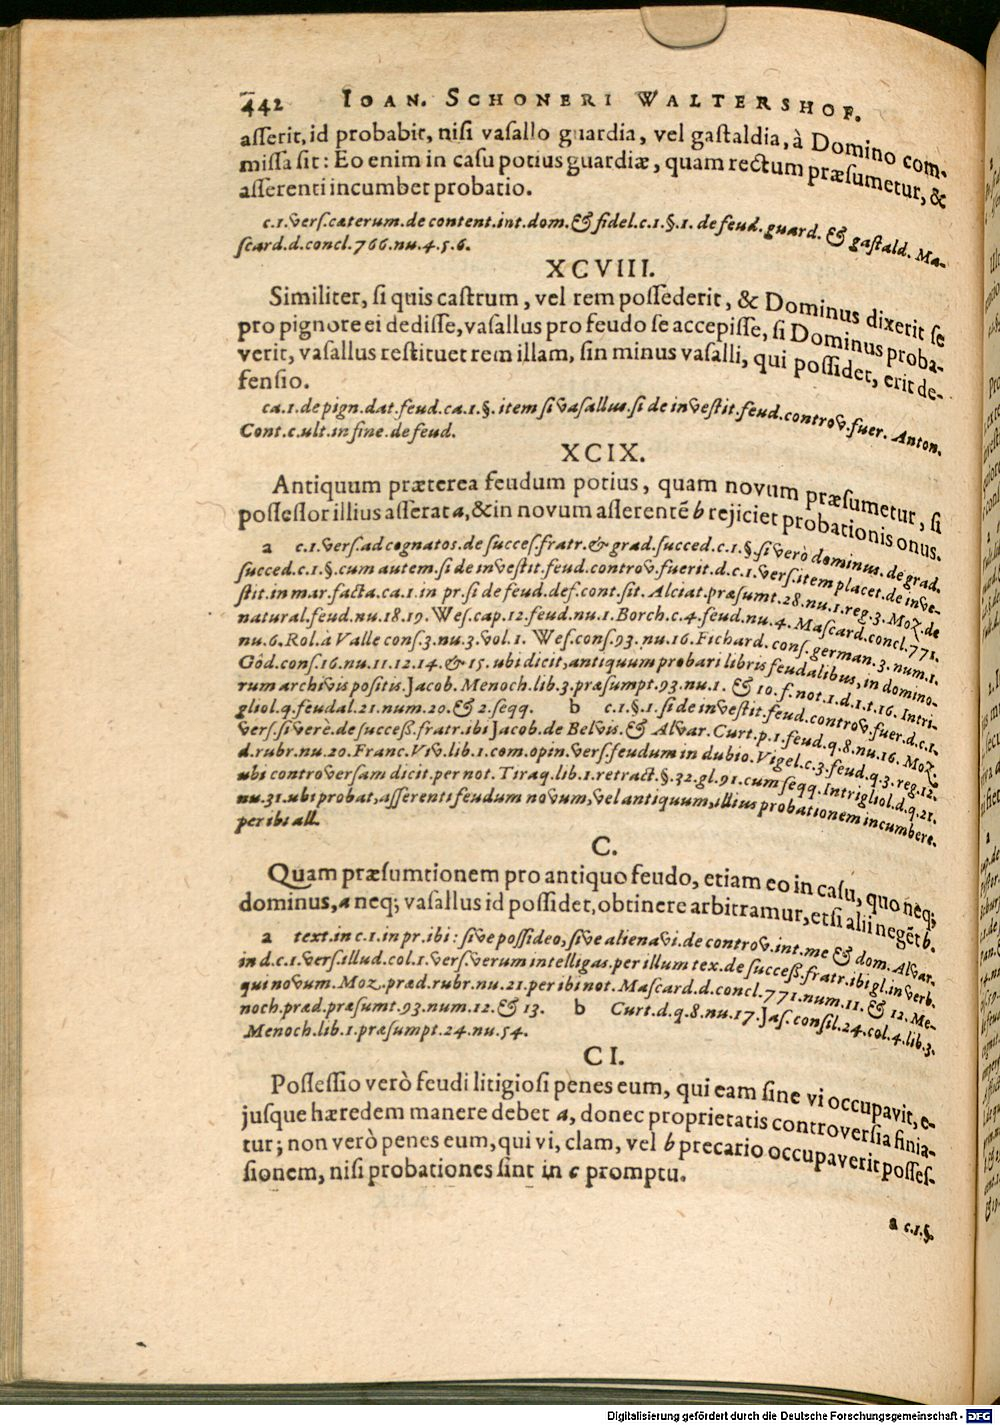 442 IOAN. SCHONERI WALTERSHOF.
asserit, id probabit, nisi vasallo guardia, vel gastaldia, à Domino com-
missa sit: Eo enim in casu potius guardiæ, quam rectum præsumetur, &
asserenti incumbet probatio.
c.1. vers. cæterum. de content. int. dom. & fidel. c.1. §. 1. de feud. guard. & gastald. Ma-
scard. d. concl. 766. nu. 4. 5. 6.
XCVIII.
Similiter, si quis castrum, vel rem possederit, & Dominus dixerit se
pro pignore ei dedisse, vasallus pro feudo se accepisse, si Dominus proba-
verit, vasallus restituet rem illam, sin minus vasalli, qui possidet, erit de-
fensio.
ca. 1. de pign. dat. feud. ca. 1. §. item si vasallus. si de investit. feud. controv. fuer. Anton.
Cont. c. ult. in fine. de feud.
XCIX.
Antiquum præterea feudum potius, quam novum præsumetur, si
possessor illius asserat a, & in novum asserentē b rejiciet probationis onus.
a c.1. vers. ad cognatos. de succes. fratr. & grad. succed. c.1. §. si verò dominus. de grad.
succed. c.1. §. cum autem. si de investit. feud. controv. fuerit. d. c.1. vers. item placet. de inve-
stit. in mar. facta. ca. 1. in pr. si de feud. def. cont. sit. Alciat. præsumt. 28. nu. 1. reg. 3. Moz. de
natural. feud. nu. 18. 19. Wes. cap. 12. feud. nu. 1. Borch. c. 4. feud. nu. 4. Mascard. concl. 771.
nu. 6. Rol. à Valle cons. 3. nu. 3. vol. 1. Wes. cons. 93. nu. 16. Fichard. cons. german. 3. num. 1.
Gôd. cons. 16. nu. 11. 12. 14. & 15. ubi dicit, antiquum probari libris feudalibus, in domino-
rum archivis positis. Jacob. Menoch. lib. 3. præsumpt. 93. nu. 1. & 10. f. not. 1. d. 1. t. 16. Intri-
gliol. q. feudal. 21. num. 20. & 2. seqq. b c.1. §. 1. si de investit. feud. controv. fuer. d. c. 1.
vers. si verè. de success. fratr. ibi Jacob. de Belvis. & Alvar. Curt. p. 1. feud. q. 8. nu. 16. Moz.
d. rubr. nu. 20. Franc. Viv. lib. 1. com. opin. vers. feudum in dubio. Vigel. c. 3. feud. q. 3. reg. 12.
ubi controversam dicit. per not. Tiraq. lib. 1. retract. §. 32. gl. 91. cum seqq. Intrigliol. d. q. 21.
nu. 31. ubi probat, asserenti feudum novum, vel antiquum, illius probationem incumbere.
per ibi all.
C.
Quam præsumtionem pro antiquo feudo, etiam eo in casu, quo neq;
dominus, a neq; vasallus id possidet, obtinere arbitramur, etsi alii negēt b.
a text. in c.1. in pr. ibi: sive possideo, sive alienavi. de controv. int. me & dom. Alvar.
in d. c. 1. vers. illud. col. 1. vers. verum intelligas. per illum tex. de success. fratr. ibi gl. in verb.
qui novum. Moz. præd. rubr. nu. 21. per ibi not. Mascard. d. concl. 771. num. 11. & 12. Me-
noch. præd. præsumt. 93. num. 12. & 13. b Curt. d. q. 8. nu. 17. Jas. consil. 24. col. 4. lib. 3.
Menoch. lib. 1. præsumpt. 24. nu. 54.
CI.
Possessio verò feudi litigiosi penes eum, qui eam sine vi occupavit, e-
jusque hæredem manere debet a, donec proprietatis controversia finia-
tur; non verò penes eum, qui vi, clam, vel b precario occupaverit posses-
sionem, nisi probationes sint in c promptu.
a c.1. §.
Digitalisierung gefördert durch die Deutsche Forschungsgemeinschaft - DFG